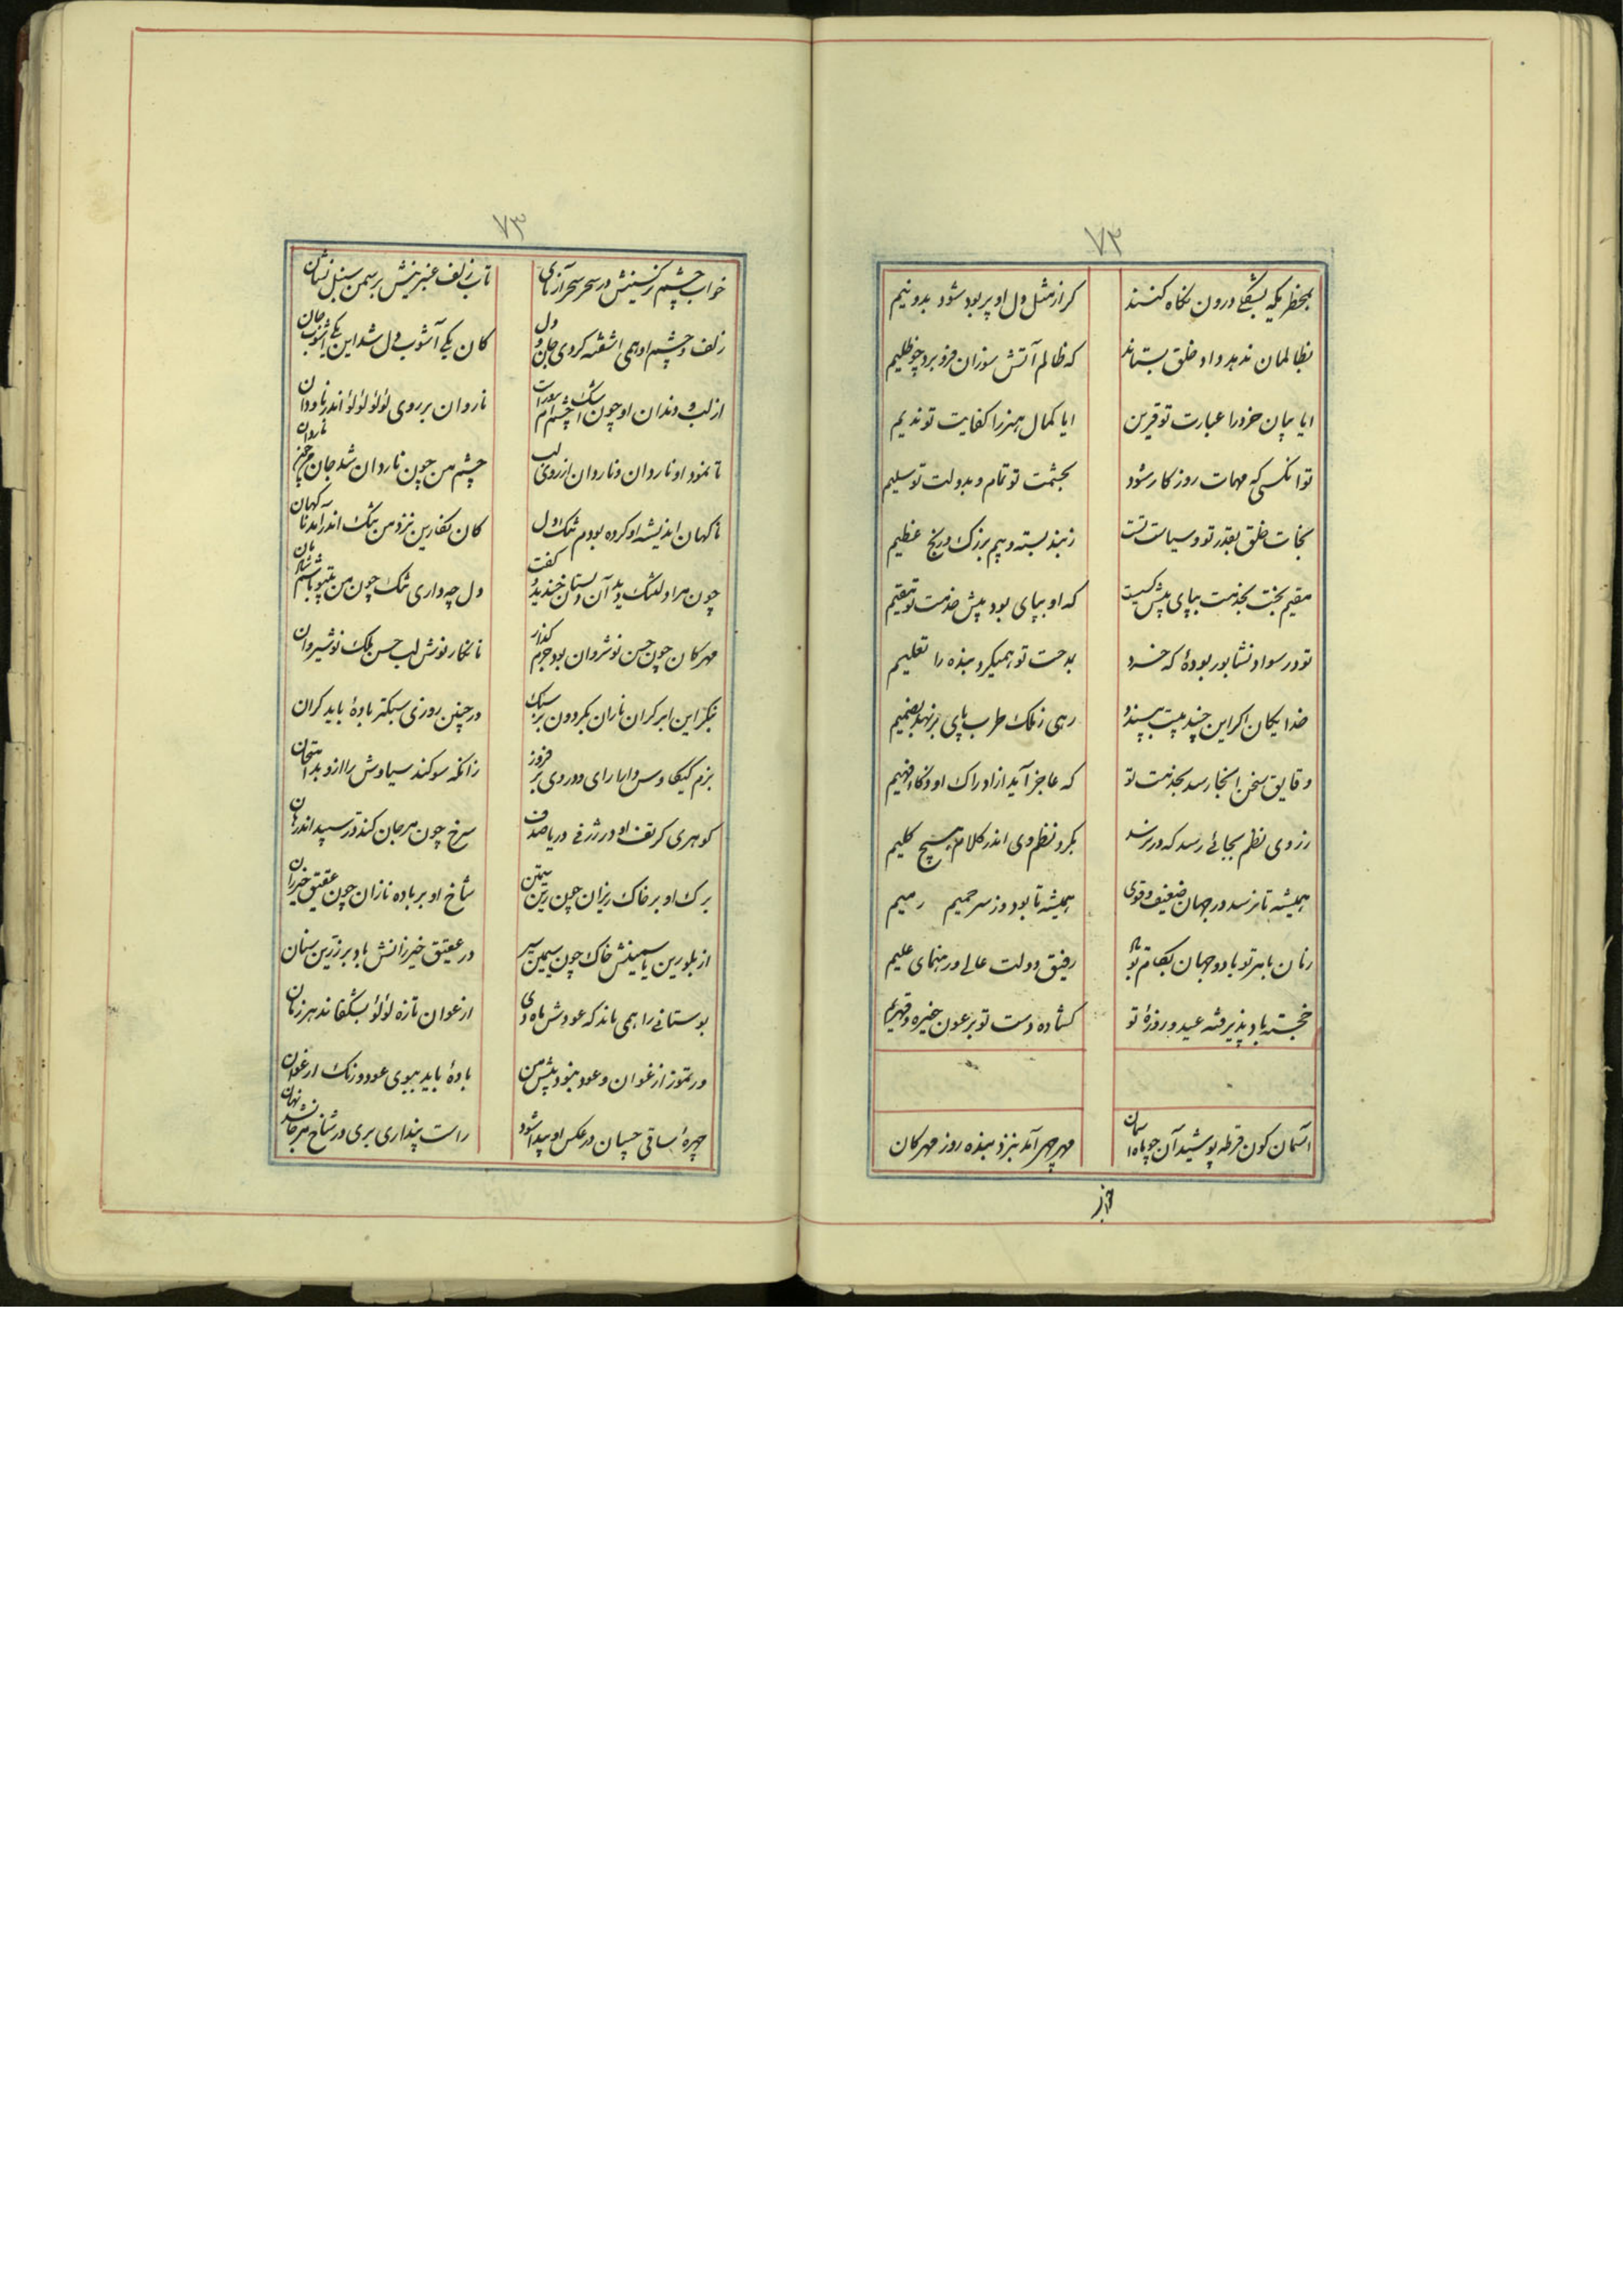 ۷۲
بمخطر یکه بشفی درون نکاه کنند کر از مثل دل او پر بود شود بدو نیم
بظالمان ندهد داد خلق بستاند که ظالم آتش سوزان فرو برد چو ظلیم
ایا بیان خرد را عبارت تو قرین ایا کمال هنر را کفایت تو ندیم
تو انکسی که مهمات روز کار شود بحشمت تو تمام و بدولت تو سلیم
نجات خلق بقدر تو و سیاست تست ز بند بسته و بیم بزرک و رنج عظیم
مقیم بخت بخدمت بپای پیش کسیست که او بپای بود پیش خدمت تو مقیم
تو در سواد نشابور بودهٔ که خرد بدحت تو همیکرد بنده را تعلیم
خدایکان اکر این چند بیت بپسندد رهی ز ملک طرب پای بر نهد بضمیم
دقایق سخن انجا رسد بخدمت تو که عاجز آید از ادراک او ذکاء فهیم
ز روی نظم بجائی رسد که در نرسد بکرد نظم وی اندر کلام هیچ کلیم
همیشه تا نرسد در جهان ضعیف و قوی همیشه تا بود دوز سر حمیم رمیم
زمان بامر تو باد و جهان بکام تو باد رفیق دولت عالی و رهنمای علیم
خجسته باد پذیرفته عید و روزهٔ تو کشاده دست تو بر عون خیره و قهیم
آسمان کون قرطه پوشید آن چو ماه آسمان مهر چهر آمد بنزد بنده روز مهر کان
خواب
۷۳
خواب چشم نرکسینش در سحر سحر آزمای تاب زلف عنبرینش بر سمن سنبل نشان
زلف و چشم او همی اشفته کردی جان و دل کان یکی آشوب دل شد این یکی آشوب جان
از لب و دندان او چون اشک شور است چشم ام ناروان بر روی لؤلؤ لؤلؤ اندر ناودان
تا نمود او ناردان و ناروان از روی لب چشم من چون ناردان شد جان من چون ناروان
ناکهان اندیشه او کرده بودم تنک دل کان نکارین نزد من تنک اندر آمد ناکهان
چون مرا دلتنک دید آن دلستان خندید و کفت دل چه داری تنک چون من بتو باشم شادمان
مهر کان چون حسن نوشروان بود جرم کذار نا نکار نوش لب حسن ملک نوشیروان
بنکر این ابر کران باران بکردون بر سبک در چنین روزی سبکتر بادهٔ باید کران
بزم کیکاوس وار ارای و در وی بر فروز زانکه سوکند سیاوش را ازو بد امتحان
کوهری کز تف او در ژرفی دریا صدف سرخ چون مرجان کند در سپید اندر دهان
برک او بر خاک ریزان چون زرین سیمتن شاخ او بر باده نازان چون عقیق خیزران
از بلورین یاسمینش خاک چون سیمین سپر در عقیق خیزرانش باد بر زرین سنان
بوستانی را همی ماند که عودش ماه دی ارغوان تازه لؤلؤ بشکفاند هر زمان
در تموز ارغوان و عود نبود پیش من بادهٔ باید ببوی عود و رنک ارغوان
چهرهٔ ساقی چسان در عکس او پیدا شود راست پنداری پری در شاخ مرجان شد نهان